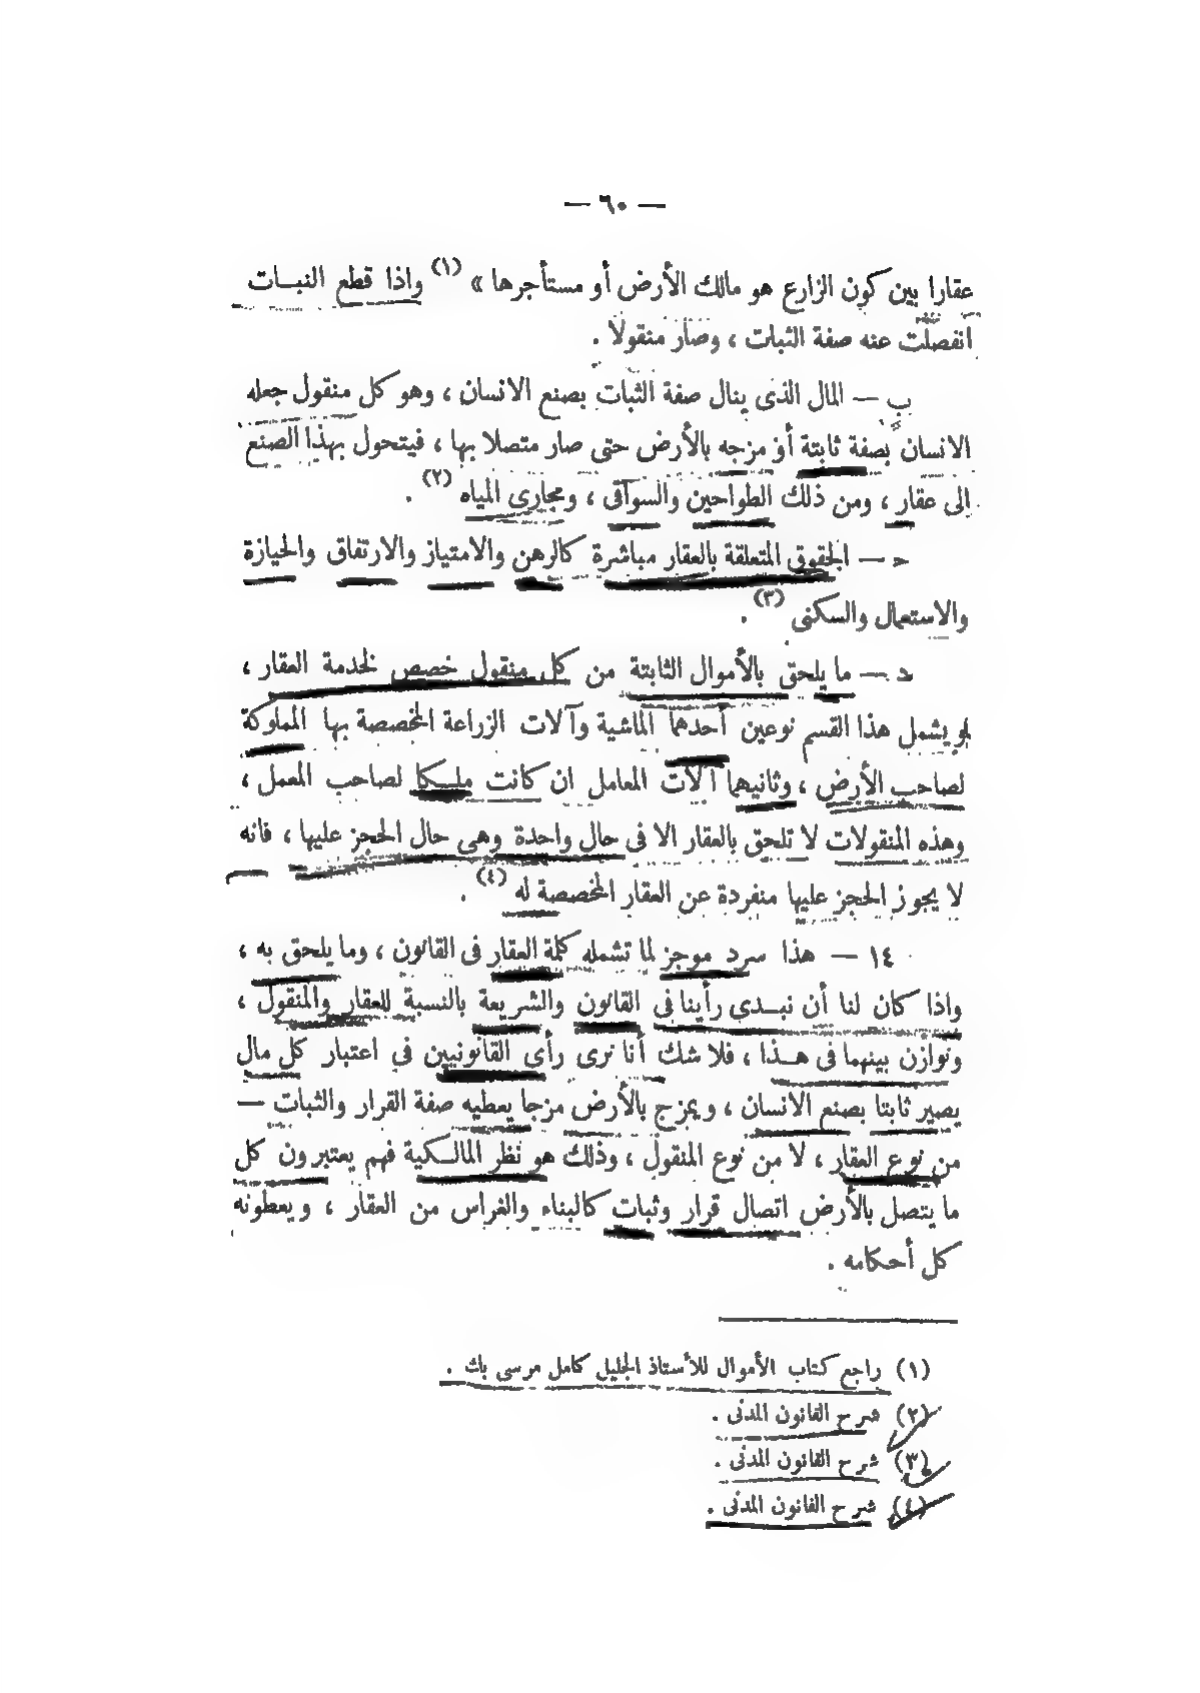 — ٦٠ —
عقارا بين كون الزارع هو مالك الأرض أو مستأجرها » (١) واذا قطع النبـات
انفصلت عنه صفة الثبات ، وصار منقولا .
ب — المال الذى ينال صفة الثبات بصنع الانسان ، وهو كل منقول جعله
الانسان بصفة ثابتة أو مزجه بالأرض حتى صار متصلا بها ، فيتحول بهذا الصنع
الى عقار ، ومن ذلك الطواحين والسواقى ، ومجارى المياه (٢) .
حـ — الحقوق المتعلقة بالعقار مباشرة كالرهن والامتياز والارتفاق والحيازة
والاستعمال والسكنى (٣) .
د — ما يلحق بالأموال الثابتة من كل منقول خصص لخدمة العقار ،
ويشمل هذا القسم نوعين أحدهما الماشية وآلات الزراعة المخصصة بها المملوكة
لصاحب الأرض ، وثانيهما آلات المعامل ان كانت ملـكا لصاحب المعمل ،
وهذه المنقولات لا تلحق بالعقار الا فى حال واحدة وهى حال الحجز عليها ، فانه
لا يجوز الحجز عليها منفردة عن العقار المخصصة له (٤) .
١٤ — هذا سرد موجز لما تشمله كلمة العقار فى القانون ، وما يلحق به ،
واذا كان لنا أن نبـدي رأينا فى القانون والشريعة بالنسبة للعقار والمنقول ،
ونوازن بينهما فى هـذا ، فلا شك أنا نرى رأى القانونيين في اعتبار كل مال
يصير ثابتا بصنع الانسان ، ويمزج بالأرض مزجا يعطيه صفة القرار والثبات —
من نوع العقار ، لا من نوع المنقول ، وذلك هو نظر المالـكية فهم يعتبرون كل
ما يتصل بالأرض اتصال قرار وثبات كالبناء والغراس من العقار ، ويعطونه
كل أحكامه .
(١) راجع كتاب الأموال للأستاذ الجليل كامل مرسى بك .
(٢) شرح القانون المدنى .
(٣) شرح القانون المدنى .
(٤) شرح القانون المدنى .